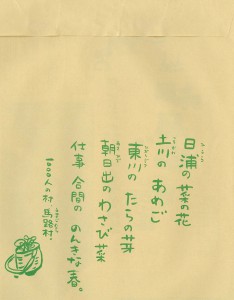 日浦の菜の花
土川の あめご
東川の たらの芽
朝日出の わさび菜
仕事 合間の のんきな春。
1000人の村・馬路村